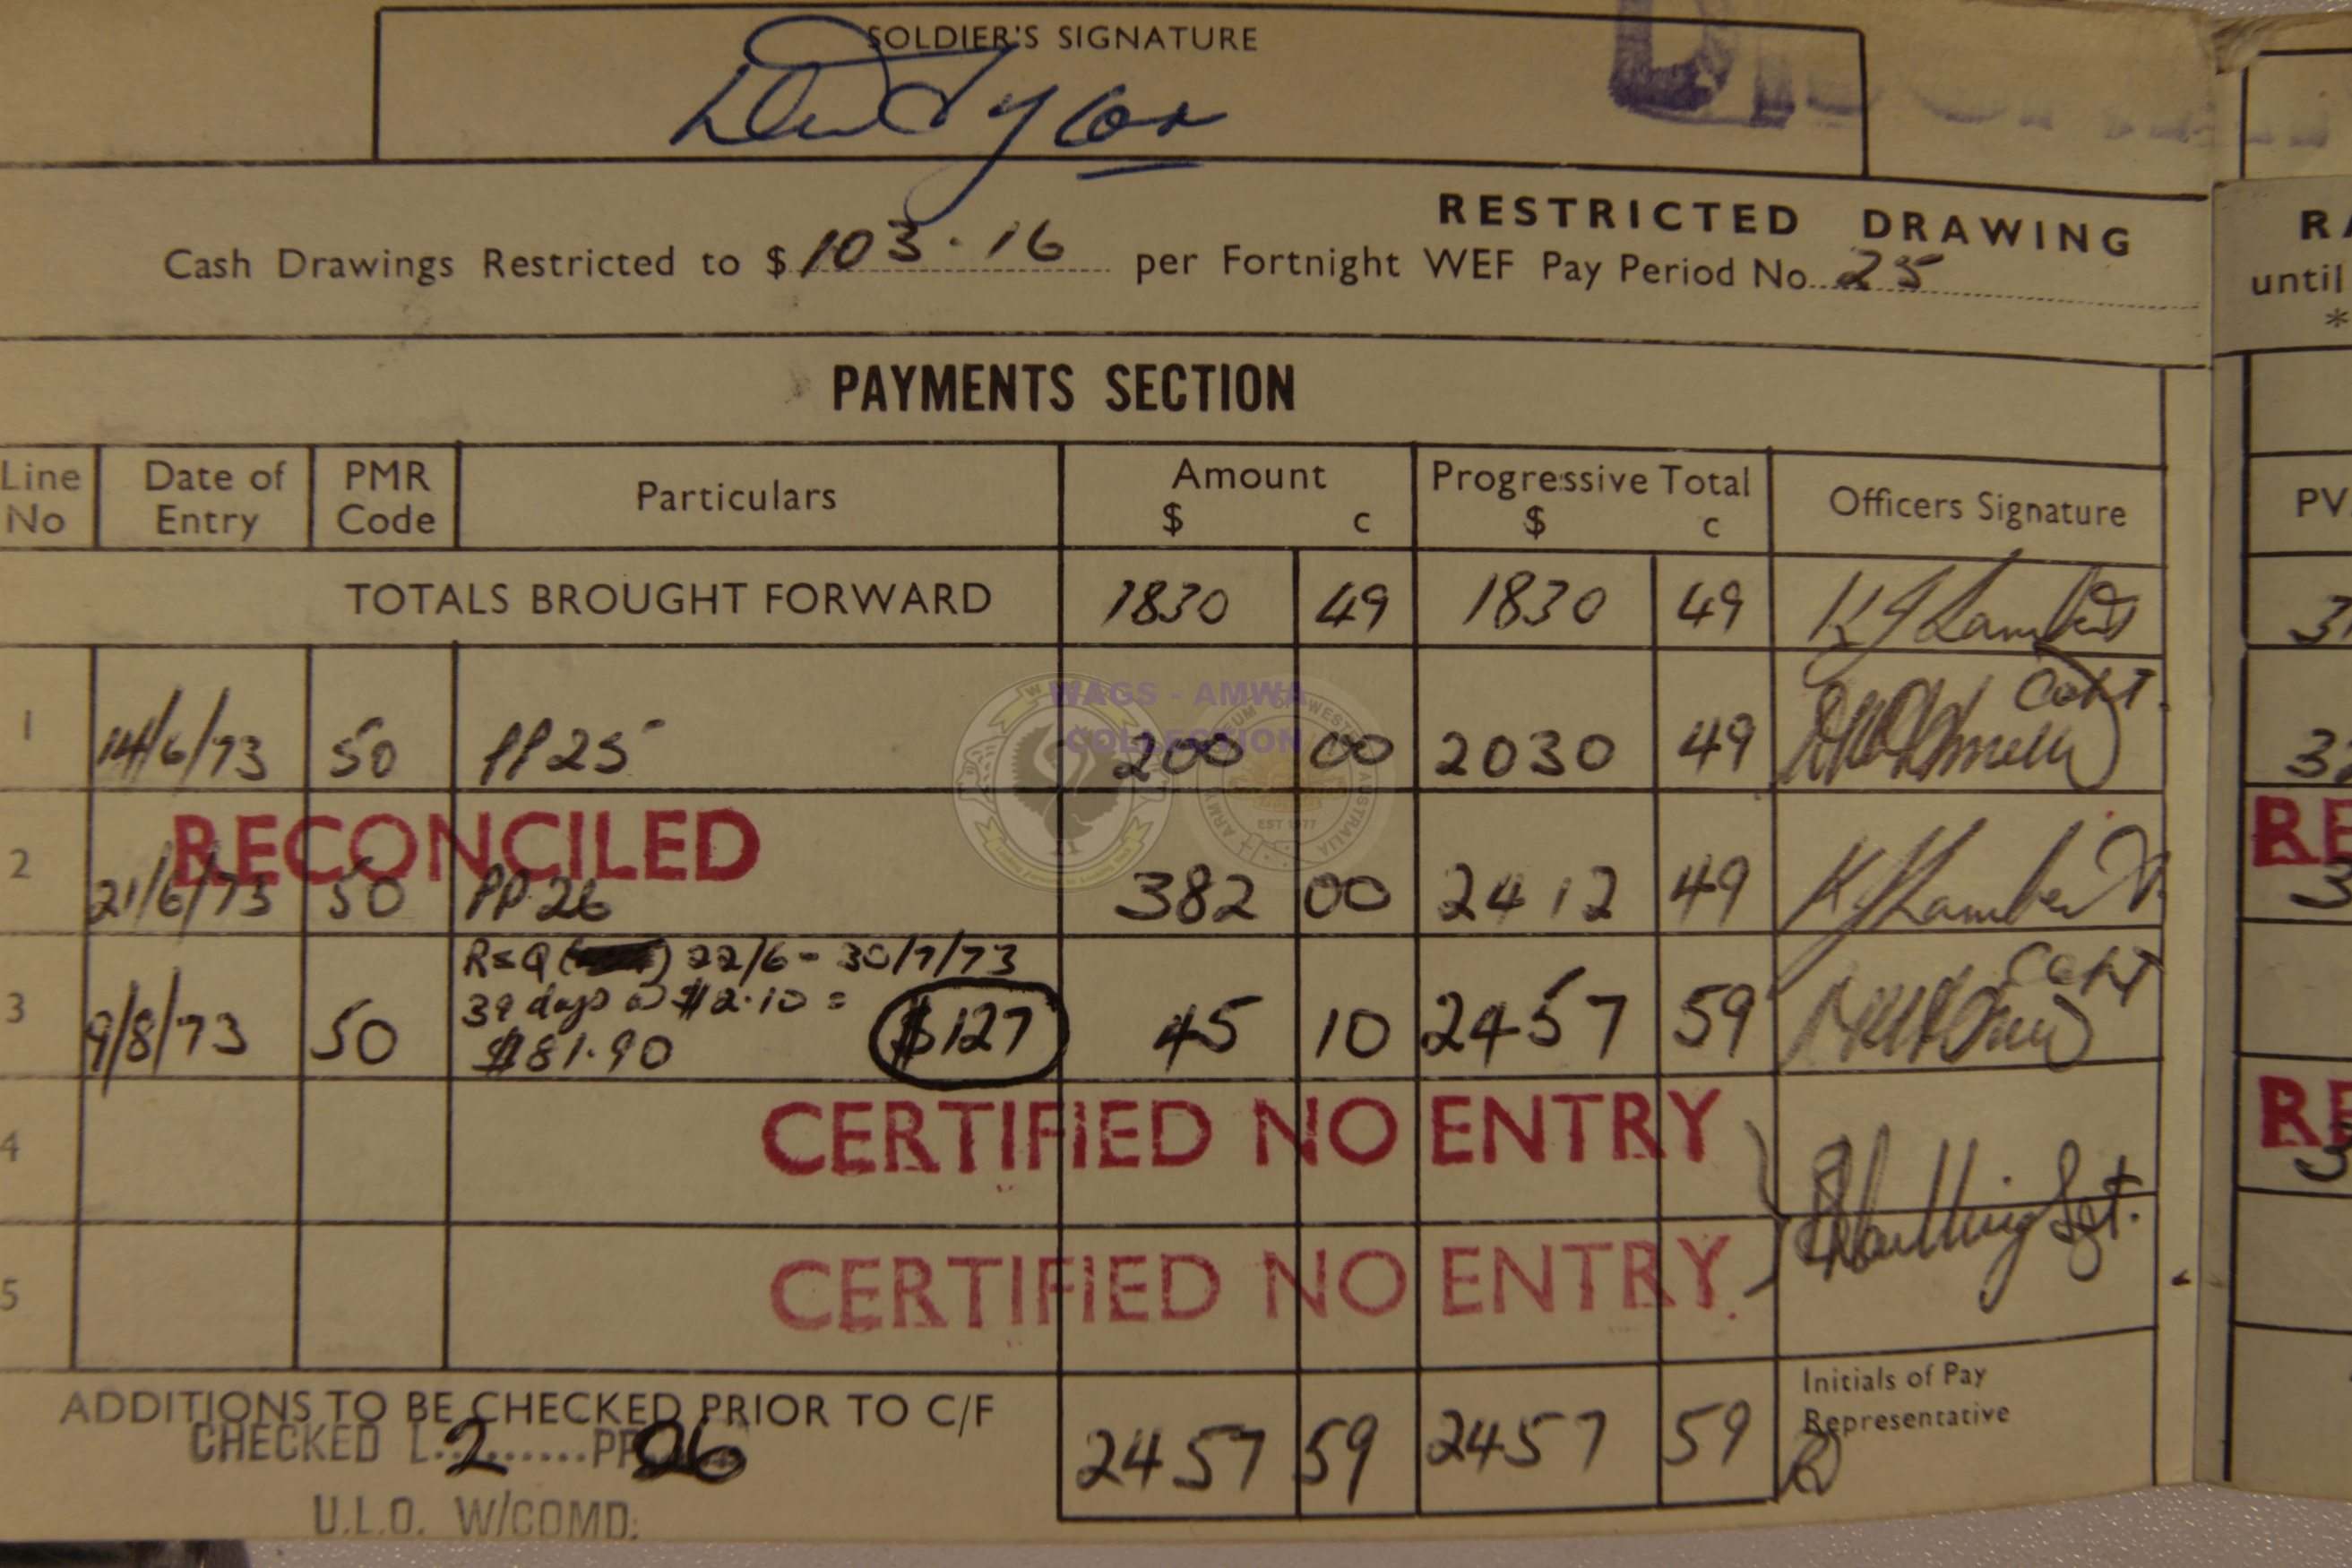 SOLDIER'S SIGNATURE
RESTRICTED DRAWING
Cash Drawings Restricted to $ 103.16 per Fortnight WEF Pay Period No. 25
until
*
PAYMENTS SECTION
Line No Date of Entry PMR Code Particulars Amount $ c Progressive Total $ c Officers Signature
PV
TOTALS BROUGHT FORWARD 1830 49 1830 49
WAGS - AMWA
COLLECTION
EST 1977
1 14/6/73 50 PP 25 200 00 2030 49
RECONCILED
2 21/6/73 50 PP 26 382 00 2412 49
R&Q 22/6 - 30/7/73
39 days @ $2.10 =
3 9/8/73 50 $81.90 $127 45 10 2457 59
4 CERTIFIED NO ENTRY
Sgt.
5 CERTIFIED NO ENTRY.
ADDITIONS TO BE CHECKED PRIOR TO C/F 2457 59 2457 59
Initials of Pay Representative
CHECKED L.2........PP 26
U.L.O. W/COMD.